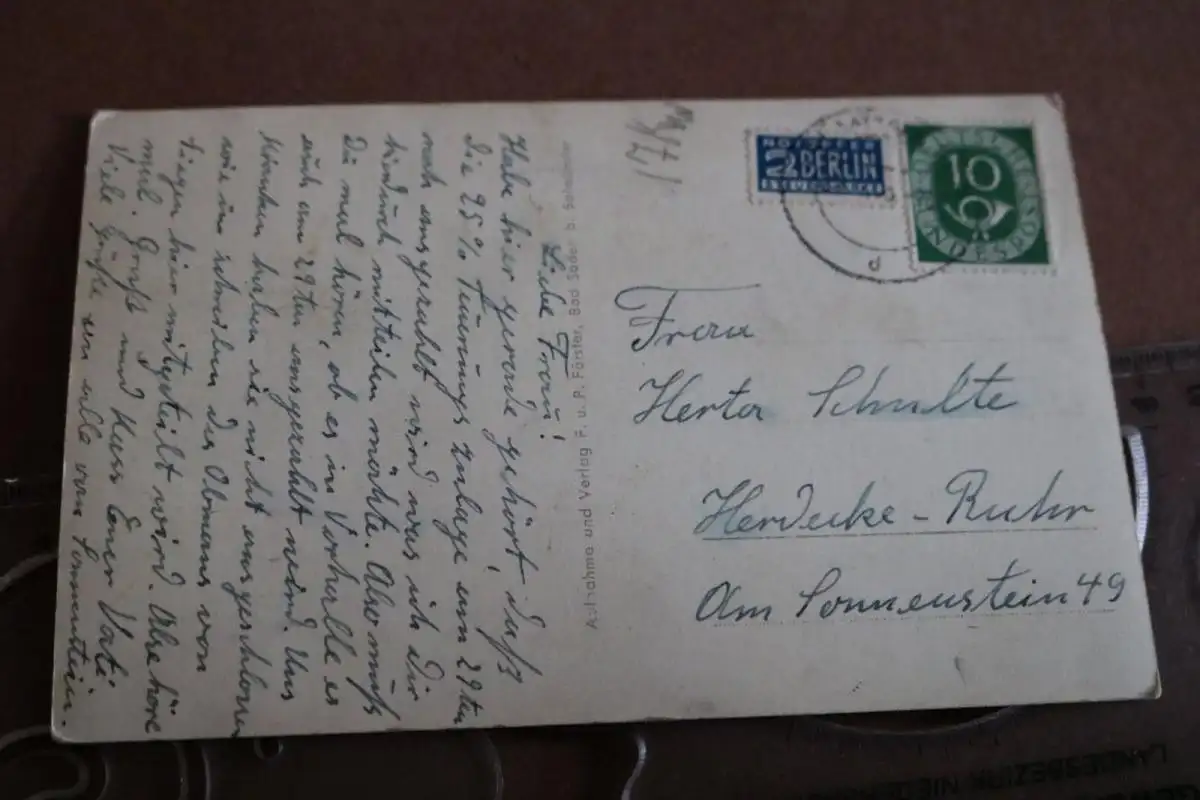 Liebe Frau!
Habe hier gerade gehört, daß
die 25% Teuerungszulage am 29ten
noch ausgezahlt wird was ich Dir
hindurch mitteilen möchte. Also mußt
Du mal hören, ob es in Vorhalle es
auch am 29ten ausgezahlt wird. Uns
könnten haben sie nicht ausgeschlossen
wie im schreiben des Obmans von
hier mitgeteilt wird. Also höre
mal. Gruß und Kuss Euer Vati
Viele Grüße an alle vom Sonnenstein.
Aufnahme und Verlag F. u. R. Förster, Bad Soden b. Salmünster
NOTOPFER
2 BERLIN
STEUERMARKE
d
10
DEUTSCHE BUNDESPOST
Frau
Herta Schulte
Herdecke-Ruhr
Am Sonnenstein 49
LANDESBEZIRK